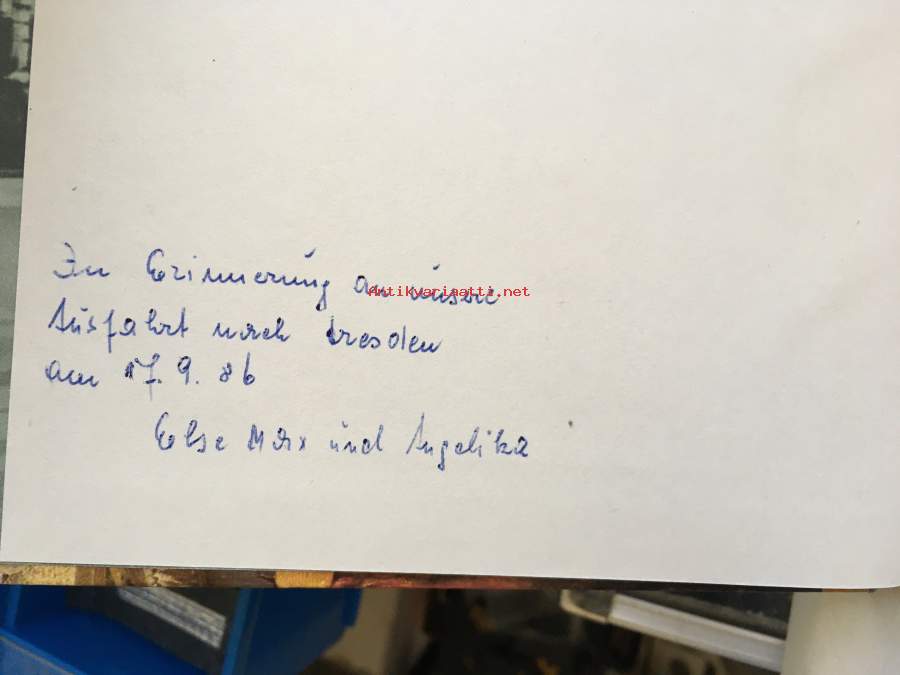 Zur Erinnerung an unsere
Antikvariaatti.net
Ausfahrt nach Dresden
am 17.9.86
Else Marx und Angelika